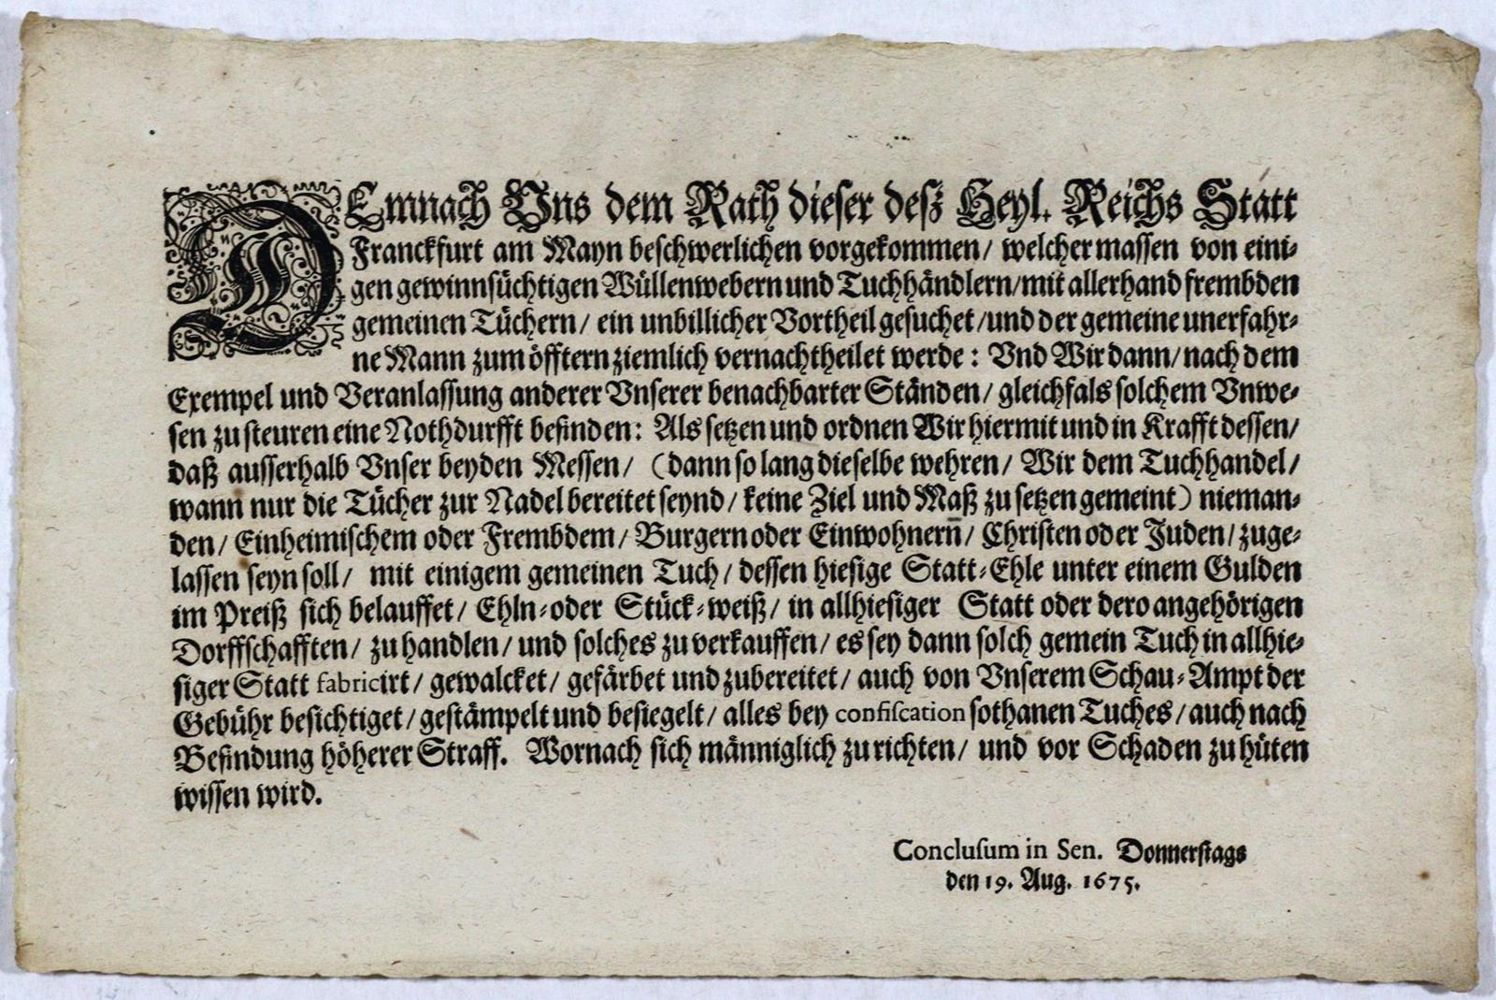 DEmnach Vns dem Rath dieser deß Heyl. Reichs Statt
Franckfurt am Mayn beschwerlichen vorgekommen/ welcher massen von eini-
gen gewinnsüchtigen Wüllenwebern und Tuchhändlern/mit allerhand frembden
gemeinen Tüchern/ ein unbillicher Vortheil gesuchet/und der gemeine unerfahr-
ne Mann zum öfftern ziemlich vernachtheilet werde: Vnd Wir dann/ nach dem
Exempel und Veranlassung anderer Vnserer benachbarter Ständen/ gleichfals solchem Vnwe-
sen zu steuren eine Nothdurfft befinden: Als setzen und ordnen Wir hiermit und in Krafft dessen/
daß ausserhalb Vnser beyden Messen/ (dann so lang dieselbe wehren/ Wir dem Tuchhandel/
wann nur die Tücher zur Nadel bereitet seynd/ keine Ziel und Maß zu setzen gemeint) nieman-
den/ Einheimischem oder Frembdem/ Burgern oder Einwohnern̄/ Christen oder Juden/ zuge-
lassen seyn soll/ mit einigem gemeinen Tuch/ dessen hiesige Statt-Ehle unter einem Gulden
im Preiß sich belauffet/ Ehln-oder Stück-weiß/ in allhiesiger Statt oder dero angehörigen
Dorffschafften/ zu handlen/ und solches zu verkauffen/ es sey dann solch gemein Tuch in allhie-
siger Statt fabricirt/ gewalcket/ gefärbet und zubereitet/ auch von Vnserem Schau-Ampt der
Gebühr besichtiget/ gestämpelt und besiegelt/ alles bey confiscation sothanen Tuches/ auch nach
Befindung höherer Straff. Wornach sich männiglich zu richten/ und vor Schaden zu hüten
wissen wird.
Conclusum in Sen. Donnerstags
den 19. Aug. 1675.